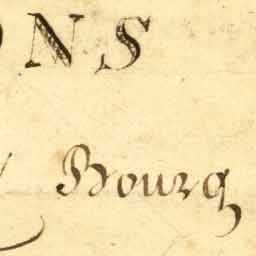 ONS
Bourg